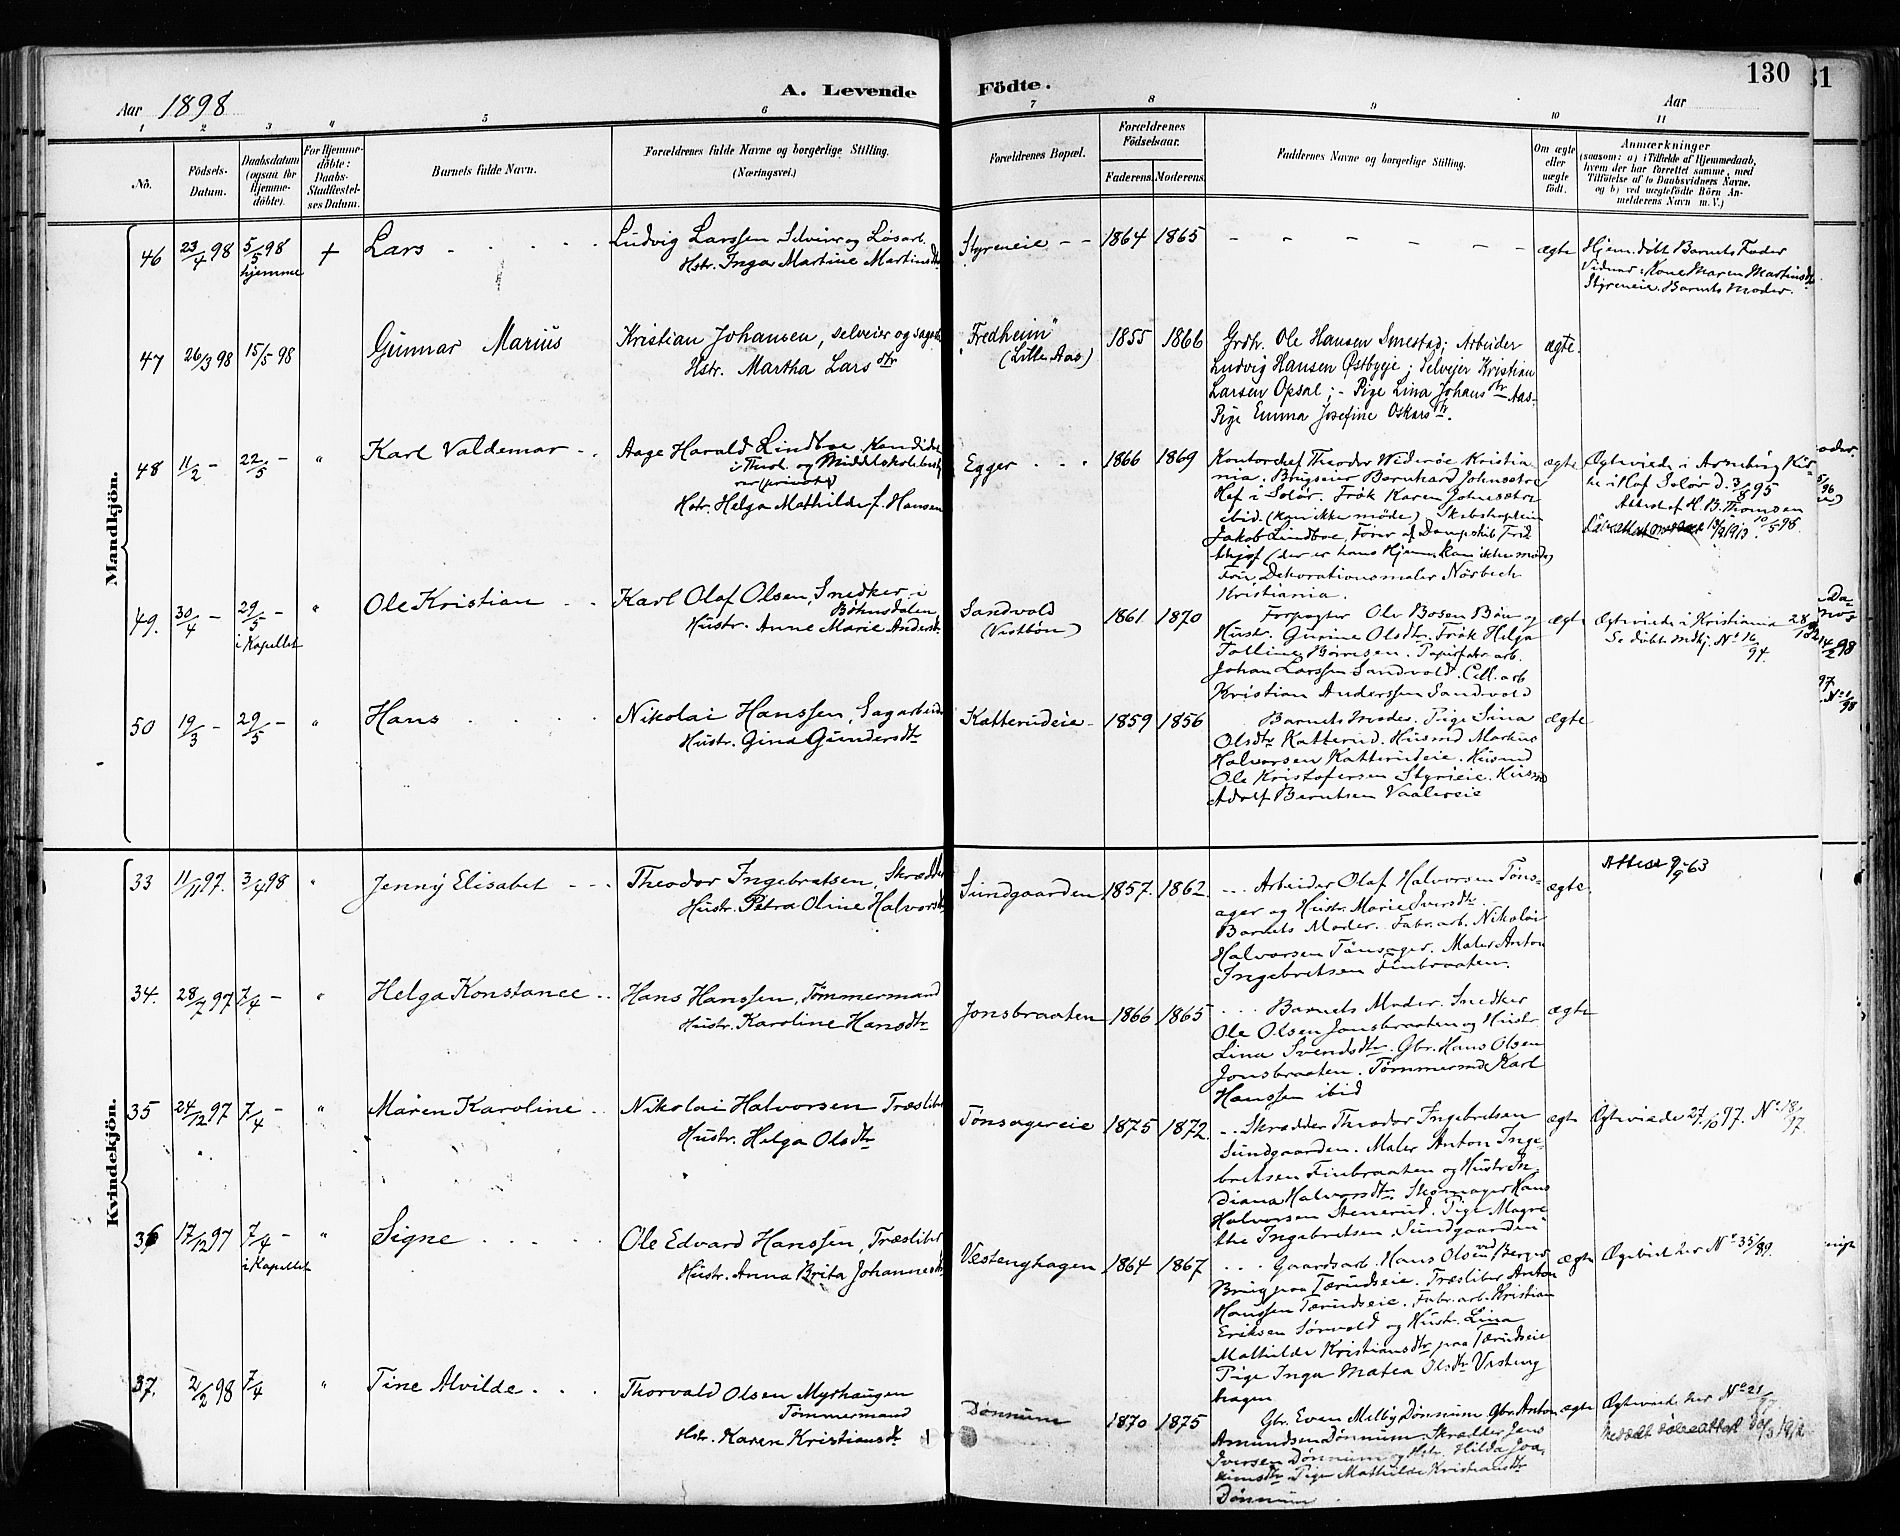 Aar 1898
A. Levende
Födte.
130
Aar
31
1 2 3 4 5 6 7 8 9 10 11
No.
Födsels-
Datum.
Daabsdatum
(ogsaa for
Hjemme-
döbte).
For Hjemme-
döbte:
Daabs-
Stadfæstel-
ses Datum.
Barnets fulde Navn.
Forældrenes fulde Navne og borgerlige Stilling.
(Næringsvei.)
Forældrenes Bopæl.
Forældrenes
Födselsaar.
Faderens. Moderens.
Faddernes Navne og borgerlige Stilling.
Om ægte
eller
uægte
födt.
Anmærkninger
(saasom: a) i Tilfælde af Hjemmedaab,
hvem der har forrettet samme, med
Tilföielse af to Daabsvidners Navne,
og b) ved uægtefödte Börn An-
melderens Navn m. V.)
Mandkjön.
46 23/4 98 5/5 98
hjemme
+ Lars
Ludvig Larssen Selveier og Løsarb.
Hstr. Inga Martine Martinsdtr
Styreneie 1864 1865
ægte
Hjem. döbt Barnets Fader
Vidner: Kone Maren Martinsdtr
Styreneie. Barnets Moder.
47 26/3 98 15/5 98 Gunnar Marius
Kristian Johansen, selveier og sagarb
Hstr. Martha Larsdtr
"Fredheim"
(Lille Aas)
1855 1866
Grdbr. Ole Hansen Smestad; Arbeider
Ludvig Hansen Østbyeje; Selvejer Kristian
Larsen Opsal; - Pige Lina Johansdtr Aas.
Pige Emma Josefine Oskarsdtr.
ægte.
48 11/2 - 22/5 - " Karl Valdemar
Aage Harald Lindboe, Kandidat
i Theol. og Middelskolebesty
rer (privat)
Hstr. Helga Mathilde f. Hansen
Egger 1866 1869
Kontorchef Theodor Wederöe Kristia-
nia. Brugseier Bernhard Johnsætre
Hof i Solör. Frök Karen Johnsætre
ibid. (kan ikke møde). Skibskaptein
Jakob Lindboe, Fører af Dampskib Frid
thjof (der er hans Hjem, kan ikke møde)
Fru Dekorationsmaler Nörbech
Kristiania.
ægte
Ægteviede i Aasnes Kir-
ke i Hof Solör d. 3/8 95
Attest af H. B. Thomsen
10/5 98.
49. 30/4 - 29/5 -
i Kapellet
" Ole Kristian
Karl Olaf Olsen, Snedker, i
Bøhnsdalen
Hustr. Anne Marie Andersdtr
Sandvold
(Vestbön)
1861 1870
Forpagter Ole Bosen Bön og
Hustr. Gurine Olsdtr. Frøk Helga
Talline Børresen. Papirfabr arb.
Johan Larssen Sandvold. Cell. arb
Kristian Anderssen Sandvold
ægte
Ægteviede i Kristiania 28/
Se döbte Mdkj. No 16/94.
50 19/3 - 29/5 - " Hans
Nikolai Hanssen, Sagarbeider
Hustr. Gina Gundersdtr
Katterudeie 1859 1856
Barnets Moder. Pige Lina
Olsdtr Katterud. Husmd Markus
Halvorsen Katterudeie. Husmd
Ole Kristofersen Styrieie. Husmd
Adolf Berntsen Vaalereie
ægte
Kvindekjön.
33 11/11 97. 3/4 98 " Jenny Elisabet
Theodor Ingebretsen, Skrædder
Hustr. Petra Oline Halvorsdtr
Sundgaarden 1857. 1862.
Arbeider Olaf Halvorsen Tøns-
ager og Hustr. Marie Iversdtr.
Barnets Moder. Fabr. arb. Nikolai
Halvorsen Tönsager. Maler Anton
Ingebretsen Finbraaten.
ægte.
Attest 9/9 63
34. 28/7 97 7/4 - " Helga Konstance
Hans Hanssen, Tömmermand
Hustr. Karoline Hansdtr
Jonsbraaten 1866 1865
Barnets Moder. Snedker
Ole Olsen Jonsbraaten og Hustr
Lina Svendsdtr. Gbr. Hans Olsen
Jonsbraaten. Tømmermd Karl
Hanssen ibid
ægte
35 24/12 97 7/4 - " Maren Karoline
Nikolai Halvorsen Træsliber
Hustr. Helga Olsdtr
Tønsagereie 1875 1872.
Skrædder Theodor Ingebretsen
Sundgaarden. Maler Anton Inge-
bretsen Finbraaten og Hustr In
diana Halvorsdtr. Skomager Hans
Halvorsen Stenerud. Pige Magre
the Ingebretsen, Sundgaarden
ægte
Ægteviede 27/10 97. No 18/97.
36 17/12 97 7/4 -
i Kapellet
" Signe
Ole Edvard Hanssen, Træsliber
Hustr. Anna Brita Johannesdtr
Vestenghagen 1864 1867
Gaardsarb. Hans Olsen ved Berger
Brug paa Tærudseie. Træsliber Anton
Hanssen Tærudseie. Fabr. arb. Kristian
Eriksen Sörvald og Hustr. Lina
Mathilde Kristiansdtr paa Tærudseie
Pige Inga Matea Olsdtr Vesteng
hagen
ægte
Ægeviet her No 35/89.
37. 2/2 98 7/4 " Tine Alvilde
Thorvald Olsen Myrhaugen
Tømmermand
Hstr. Karen Kristiansdtr
Dønnum 1870 1875
Gbr. Even Melby Dønnum Gbr. Anton
Amundsen Dønnum. Skrædder Jens
Iversen Dønnum og Hstr. Hilda Joa
kimsdtr Pige Mathilde Kristiansdtr
Dønnum.
ægte
Ægteviede her No 21/97